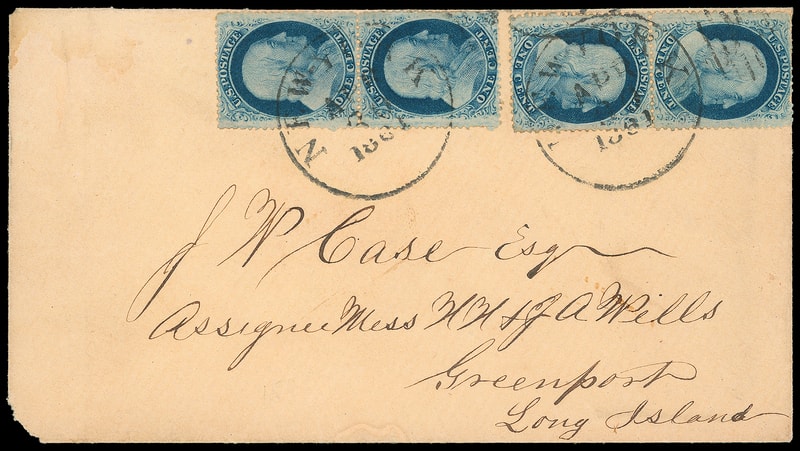 U.S. POSTAGE ONE CENT
U.S. POSTAGE ONE CENT
U.S. POSTAGE ONE CENT
U.S. POSTAGE ONE CENT
NEW YORK
1861
NEW YORK
APR
1861
J W Case Esq
Assignee Mess H H & J A Wells
Greenport
Long Island